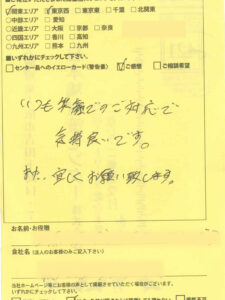 ☑関東エリア □東京西 □東京東 □千葉 □北関東
□中部エリア □愛知
□近畿エリア □大阪 □京都 □奈良
□四国エリア □香川 □高知
□九州エリア □熊本 □九州
■いずれかにチェックして下さい。
□センター長へのイエローカード(警告書) ☑ご感想 □ご相談希望
いつも笑顔でのご対応で
気持良いです。
また、宜しくお願い致します。
お名前・お役職
会社名 (法人のお客様のみご記入下さい)
当社ホームページ等にお客様の声として掲載させていただく場合がございます。
いずれかにチェックして下さい。